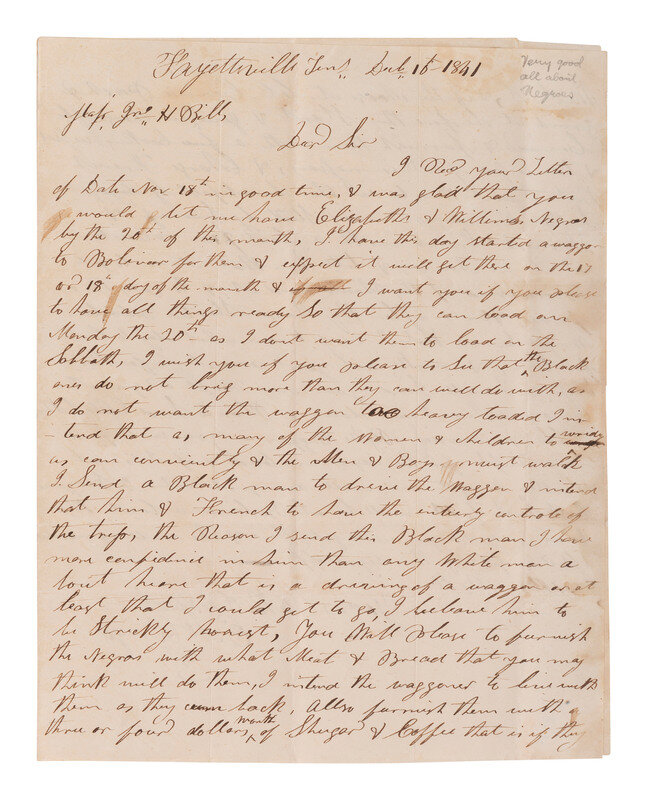 Fayettville Ten. Decb. 1st 1841
Very good
all about
Negroes
Majr. Jno H Bills
Dear Sir
I Recd your Letter
of Date Nov 18th in good time, & was glad that you
would let me have Elizabeths & Willims Negros
by the 20th of this month, I have this day started a waggon
to Bolivar for them & expect it will get there on the 17
or 18th day of the month & I want you if you please
to have all things ready So that they can load on
Monday the 20th as I dont want them to load on the
Sabbath, I wish you if you please to See that the Black
ones do not brig more than they can well do with, as
I do not want the waggon too heavy loaded I in
-tend that as many of the Women & Children to ride
as can conviently & the Men & Boys must walk
I Send a Black man to drive the waggon & intend
that him & French to have the intierly controle of
the trip, the Reason I send this Black man I have
more confidence in him than any White man a
bout heare that is a driving of a waggon or at
least that I could get to go, I beleave him to
be Strickly honest, You Will please to furnish
the Negros with what Meat & Bread that you may
think will do them, I intend the waggoner to live with
them as they cum back, allso furnish them with a
three or four dollars worth of Shugar & Coffee that is if they